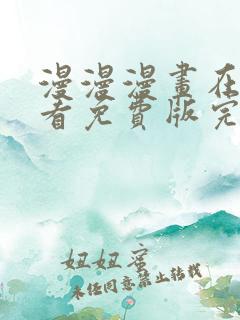 漫漫漫畫在
看免費版完
妞妞蜜
未经同意禁止转载